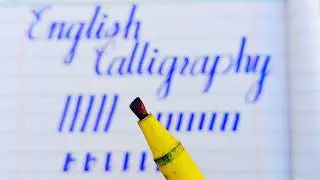 English
Calligraphy